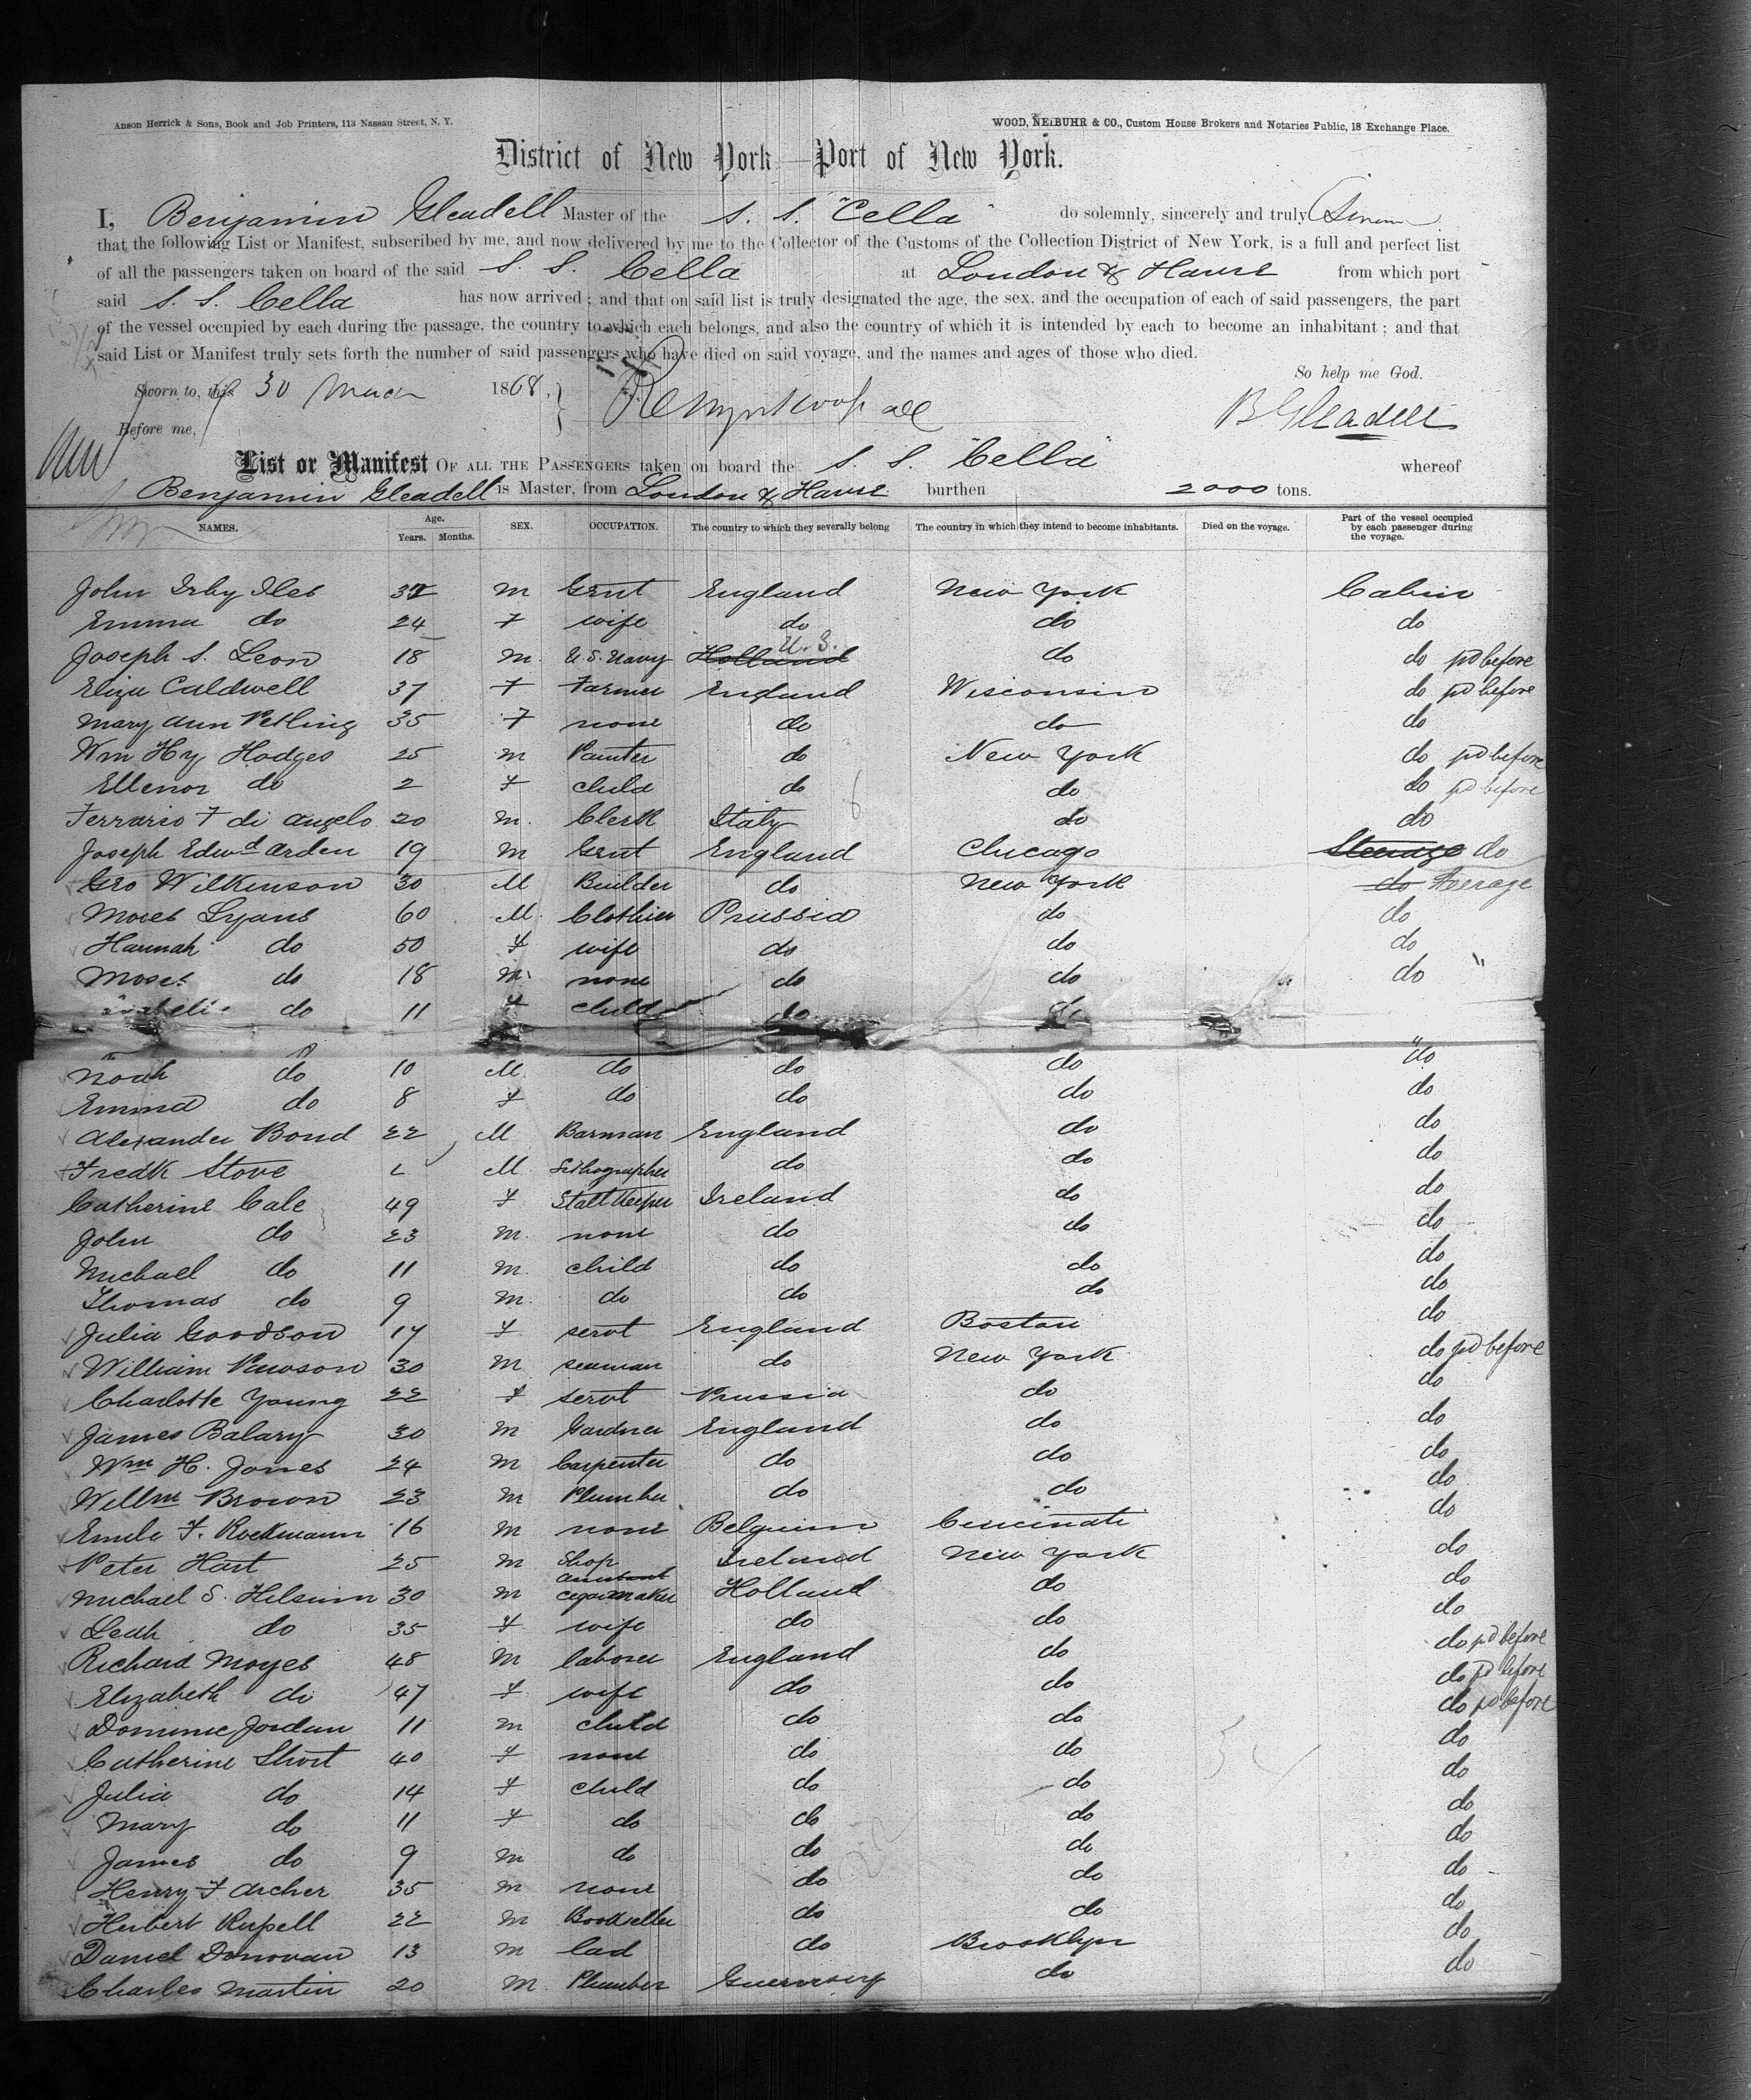 Anson Herrick & Sons, Book and Job Printers, 113 Nassau Street, N. Y.
WOOD, NEIBUHR & CO., Custom House Brokers and Notaries Public, 18 Exchange Place.
District of New York—Port of New York.
I, Benjamin Gleadell Master of the S. S. "Cella" do solemnly, sincerely and truly
that the following List or Manifest, subscribed by me, and now delivered by me to the Collector of the Customs of the Collection District of New York, is a full and perfect list
of all the passengers taken on board of the said S. S. Cella at London & Havre from which port
said S. S. Cella has now arrived; and that on said list is truly designated the age, the sex, and the occupation of each of said passengers, the part
of the vessel occupied by each during the passage, the country to which each belongs, and also the country of which it is intended by each to become an inhabitant; and that
said List or Manifest truly sets forth the number of said passengers who have died on said voyage, and the names and ages of those who died.
So help me God.
Sworn to, this 30 March 1868.
B Gleadell
Before me,
List or Manifest OF ALL THE PASSENGERS taken on board the S. S. "Cella" whereof
Benjamin Gleadell is Master, from London & Havre burthen 2000 tons.
NAMES. Age. Years. Months. SEX. OCCUPATION. The country to which they severally belong The country in which they intend to become inhabitants. Died on the voyage. Part of the vessel occupied by each passenger during the voyage.
John Irby Iles 32 M Gent England New York Cabin
Emma do 24 F wife do do do
Joseph S. Leon 18 M. U.S. Navy Holland U.S. do do pd before
Eliza Caldwell 37 F Farmer England Wisconsin do pd before
Mary Ann Petling 35 F none do do do
Wm Hy Hodges 25 M Painter do New York do pd before
Ellenor do 2 F child do do do pd before
Ferrario F di Angelo 20 M. Clerk Italy do do
Joseph Edwd Arden 19 M Gent England Chicago Steerage do
Geo Wilkinson 30 M Builder do New York do Steerage
Moses Lyans 60 M. Clothier Prussia do do
Hannah do 50 F wife do do do
Moses do 18 M. none do do do "
do 11 F child do do
Noah do 10 M. do do do do
Emma do 8 F do do do do
Alexander Bond 22 M Barman England do do
Fredk Stove M Lithographer do do do
Catherine Cale 49 F Stall Keeper Ireland do do
John do 23 M. none do do do
Michael do 11 M. child do do do
Thomas do 9 M. do do do do
Julia Goodson 17 F servt England Boston do
William Pawson 30 M seaman do New York do pd before
Charlotte Young 22 F servt Prussia do do
James Balary 30 M Gardner England do do
Wm H. Jones 24 M Carpenter do do do
Willm Brown 23 M Plumber do do do
Emile F. Rockmann 16 M none Belguim Cincinati do
Peter Hart 25 M Shop assistant Ireland New York do
Michael S. Helsum 30 M cegarmaker Holland do do
Leah do 35 F wife do do do
Richard Moyes 48 M laborer England do do pd before
Elizabeth do 47 F wife do do do pd before
Dominic Jordan 11 M child do do do pd before
Catherine Short 40 F none do do do
Julia do 14 F child do do do
Mary do 11 F do do do do
James do 9 M do do do do
Henry F Archer 35 M none do do do
Herbert Russell 22 M Bookseller do do do
Daniel Donovan 13 M lad do Brooklyn do
Charles Martin 20 M. Plumber Guernsey do do